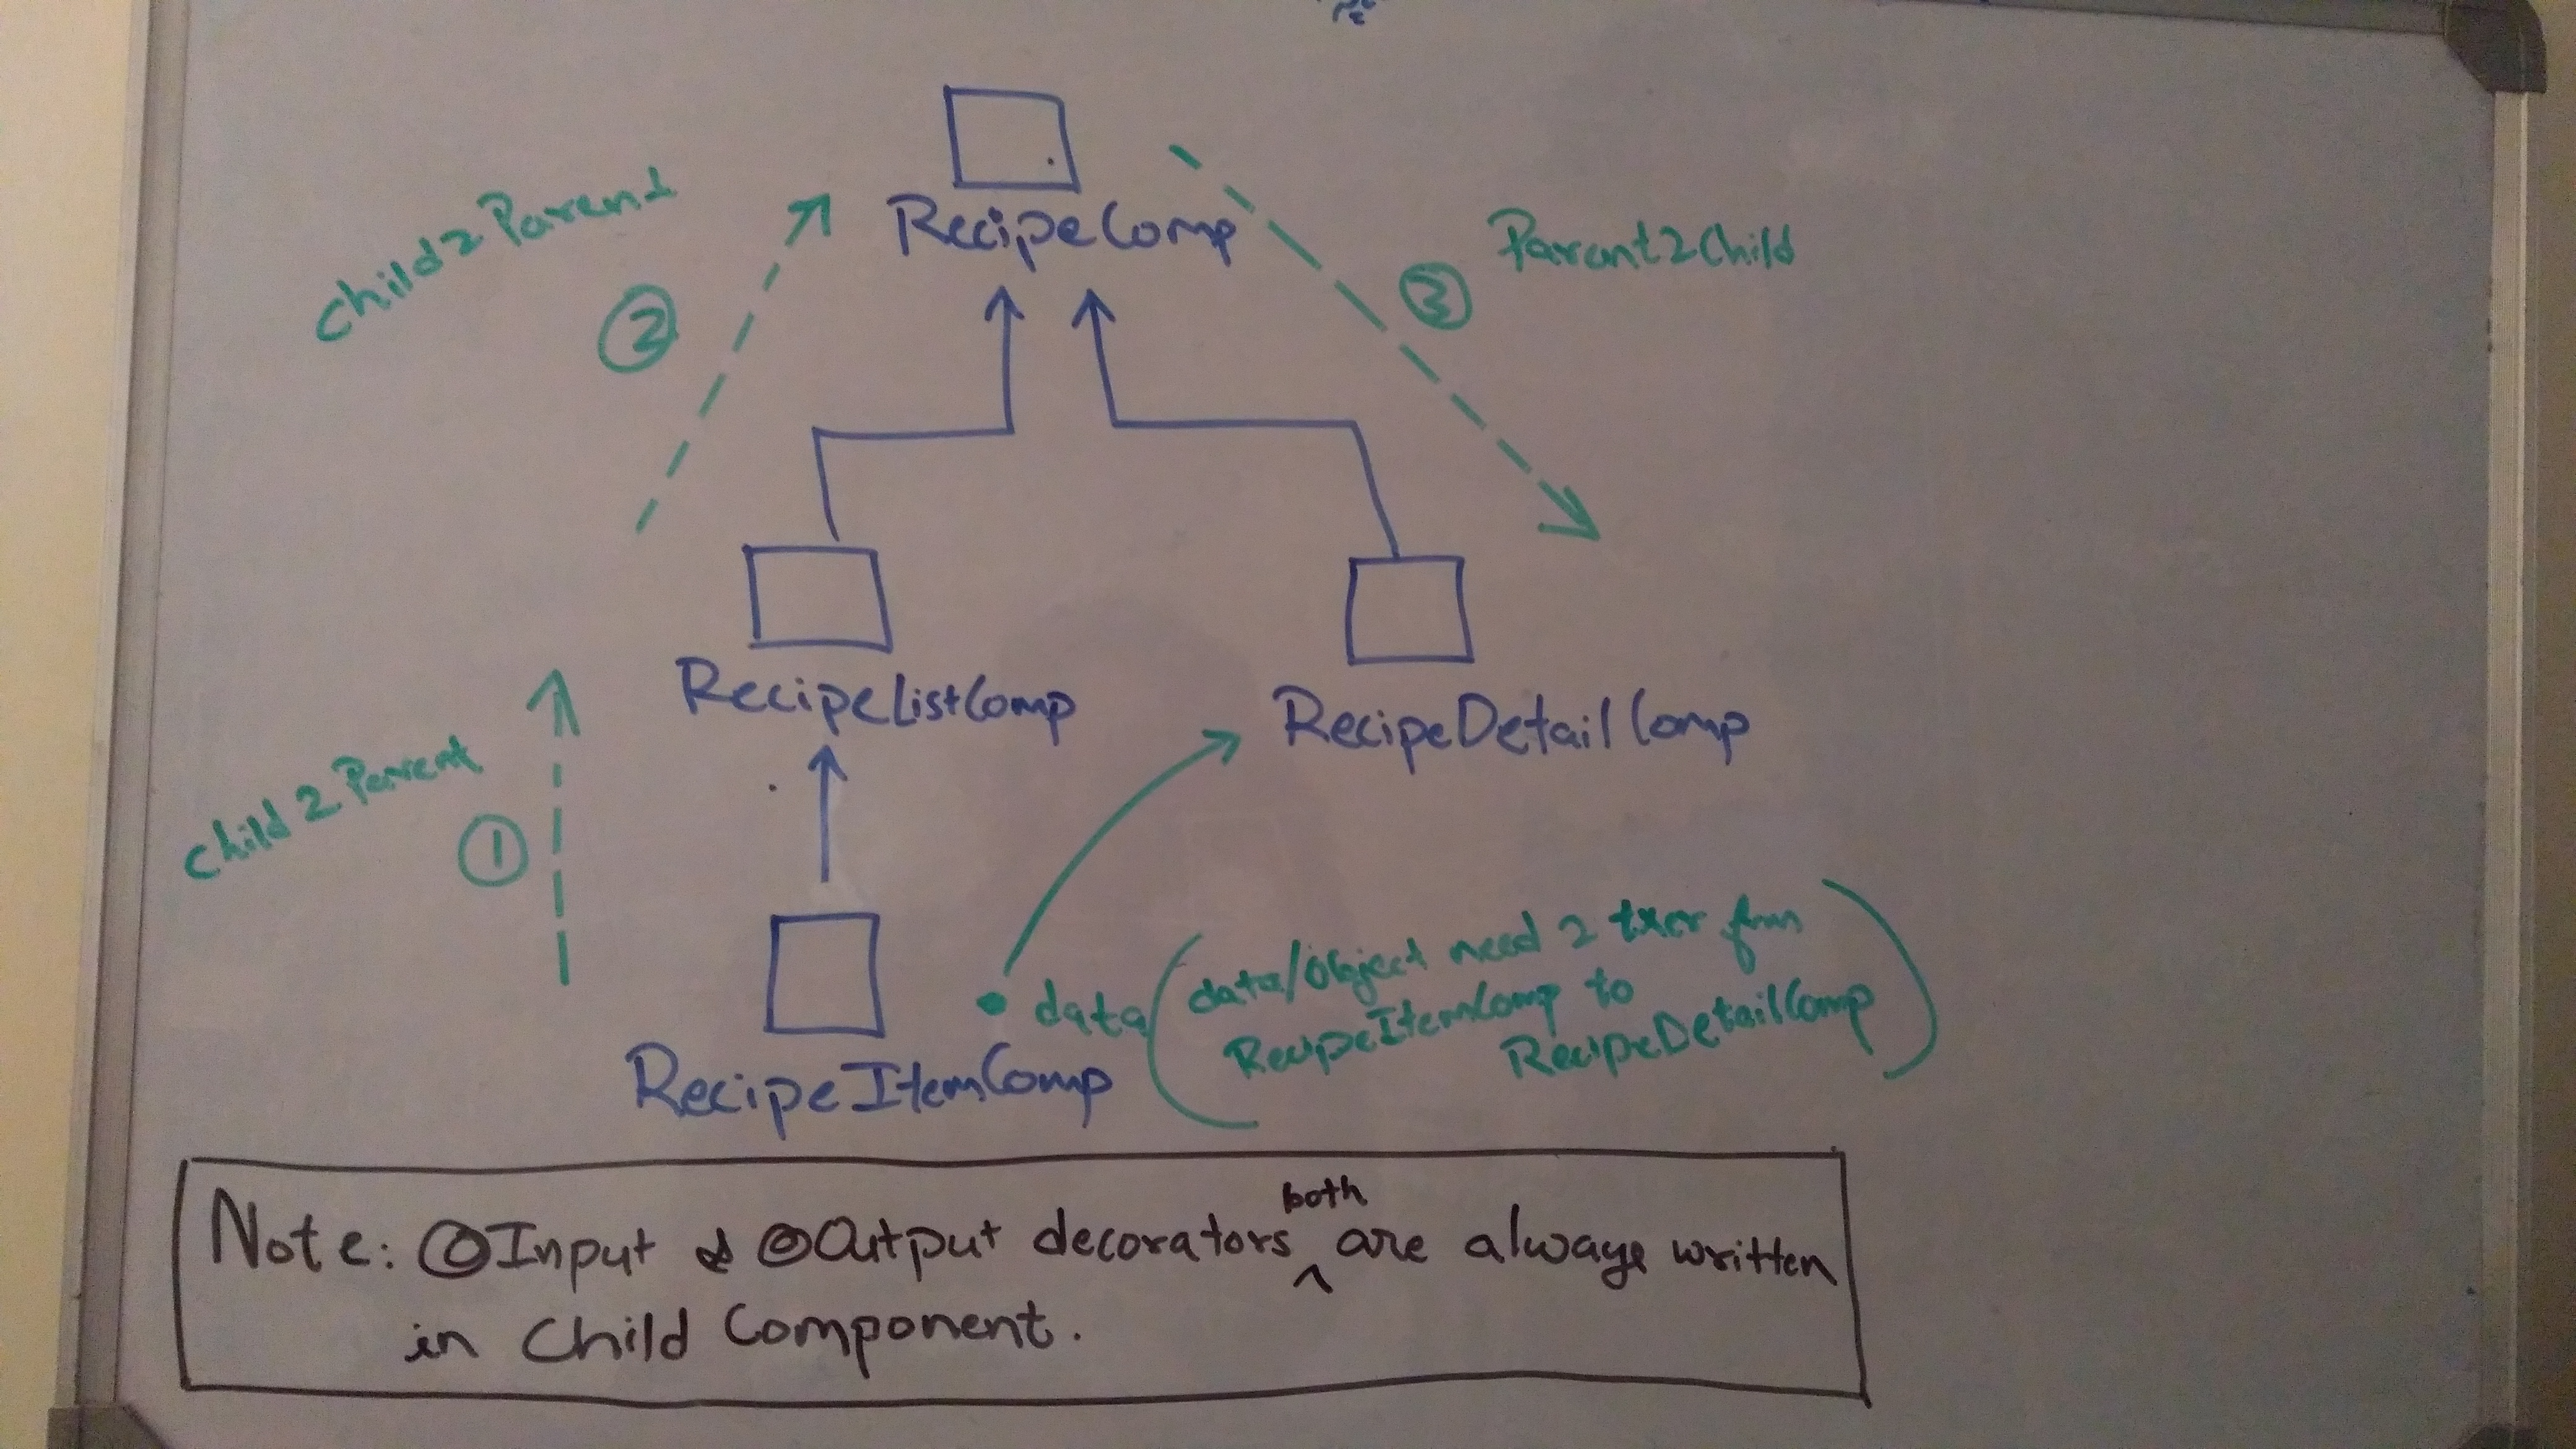 RecipeComp
Child2Parent
②
③
Parent2Child
RecipeListComp
RecipeDetailComp
Child2Parent
①
RecipeItemComp
data
data/object need 2 txer from
RecipeItemComp to
RecipeDetailComp
both
Note: @Input & @Output decorators ^ are always written
in Child Component.